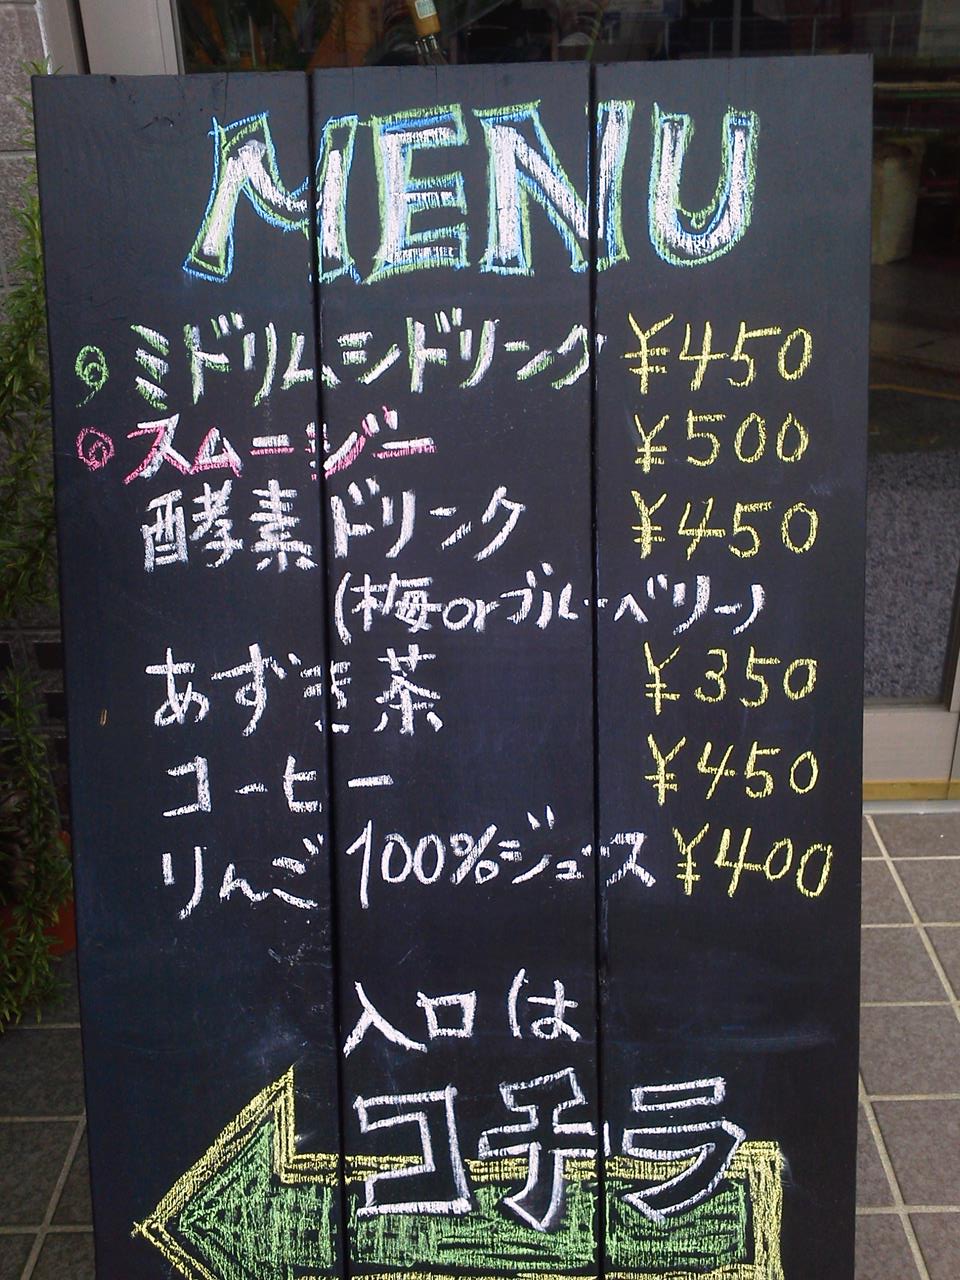 MENU
ミドリムシドリンク ¥450
スムージー ¥500
酵素ドリンク ¥450
(梅orブルーベリー)
あずき茶 ¥350
コーヒー ¥450
りんご100%ジュース ¥400
入口は
コチラ